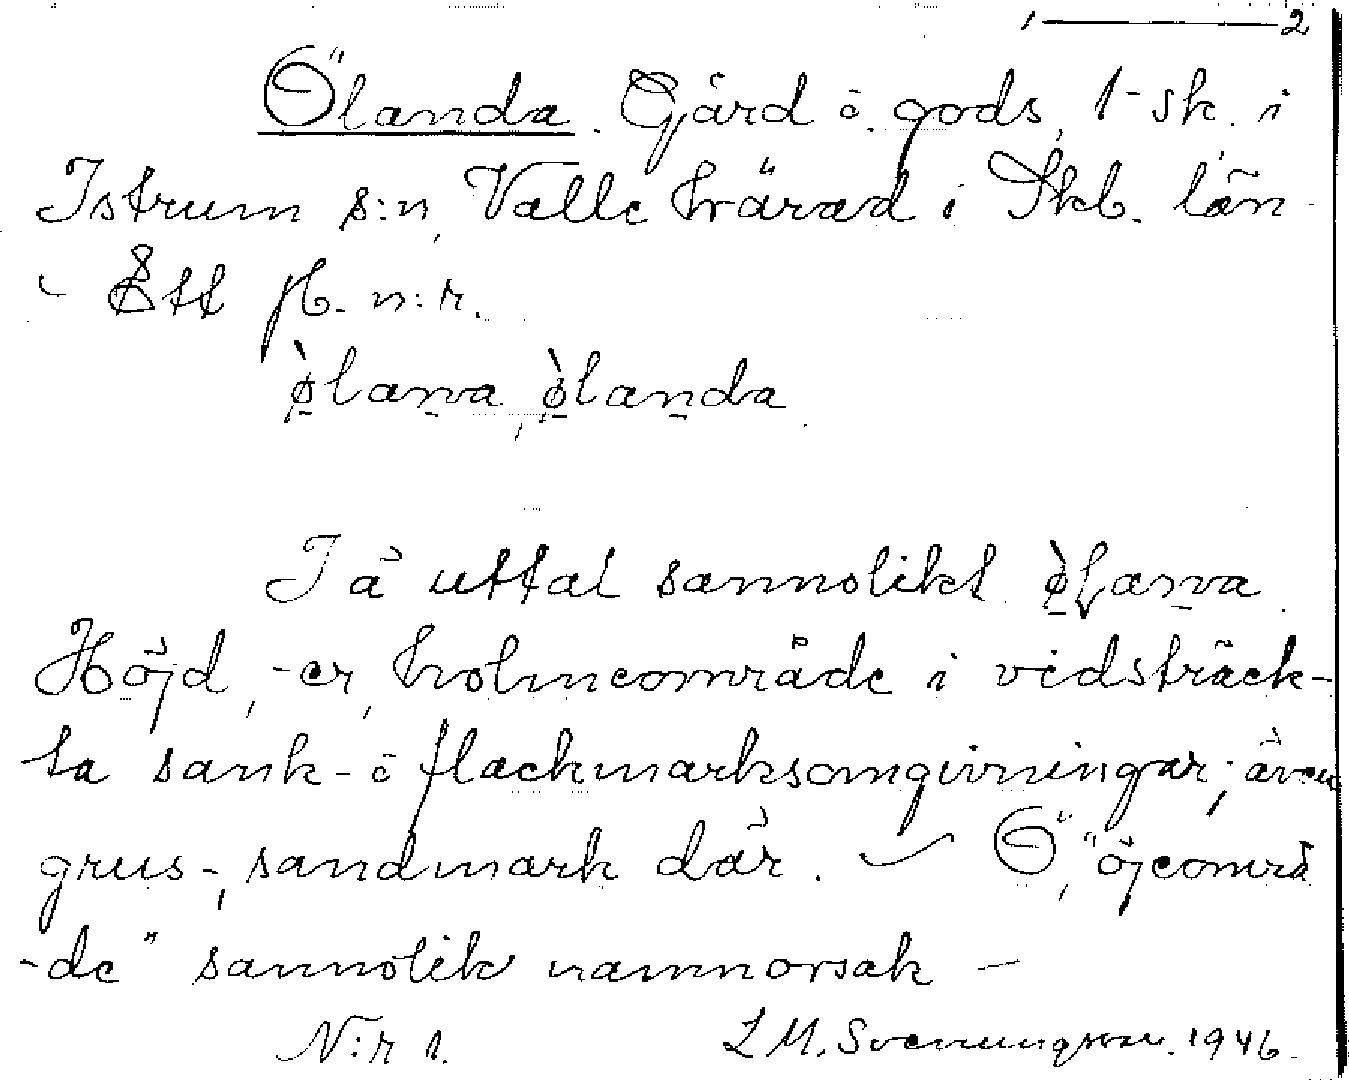 1 — 2
Ölanda. Gård ō. gods, 1-sk. i
Istrum s:n, Valle härad i Skb. län
- Ett fl. n:r.
ø̀lanna, ø̀landa.
I ä uttal sannolikt ø̀lanna.
Höjd, -er, holmeområde i vidsträck-
ta sank- ō flackmarksomgivningar; även
grus-, sandmark där. — Ö, "öjeområ
-de" sannolik namnorsak —
N:r 1. L M. Svenungsson. 1946.